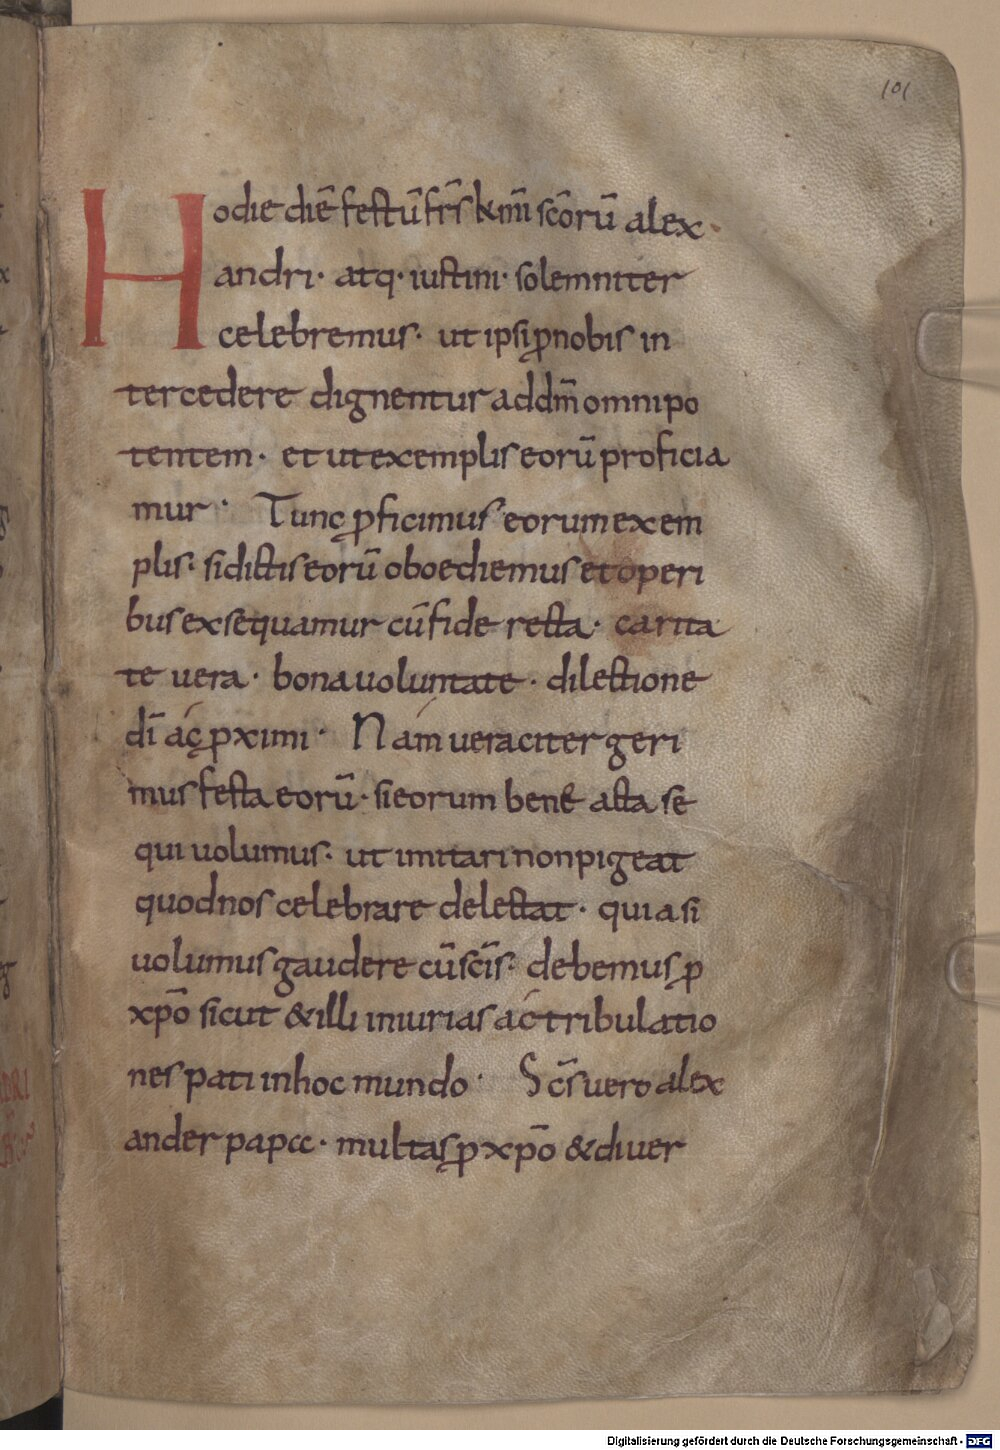 101
Hodie diē festū fr̄s km̄i scōrū alex
andri· atq· iustini· solemniter
celebremus· ut ipsi ꝓnobis in
tercedere dignentur ad dm̄ omnipo
tentem· et ut exemplis eorū proficia
mur· Tunc ꝓficimus eorum exem
plis· si dictis eorū oboediemus et operi
bus exsequamur cū fide recta· carita
te uera· bona uoluntate· dilectione
dī ac ꝓximi· Nam ueraciter geri
mus festa eorū· si eorum bene acta se
qui uolumus· ut imitari non pigeat
quod nos celebrare delectat· quia si
uolumus gaudere cū scīs· debemus ꝓ
xp̄o sicut & illi iniurias ac tribulatio
nes pati in hoc mundo· Sc̄s uero alex
ander papa· multas ꝓ xp̄o & diuer
Digitalisierung gefördert durch die Deutsche Forschungsgemeinschaft - DFG